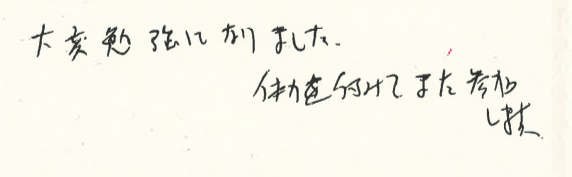 大変勉強になりました.
体力を付けてまた参加
します